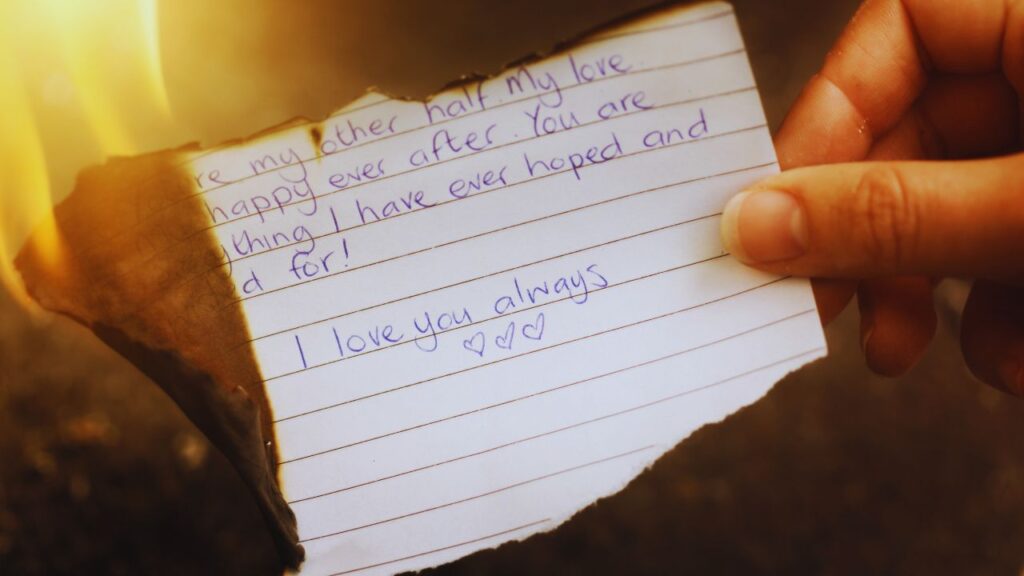 re my other half. My love
happy ever after. You are
ything I have ever hoped and
d for!
I love you always